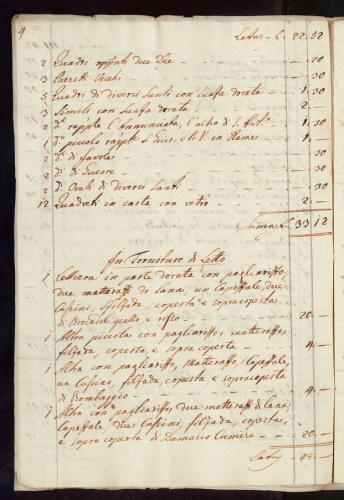 4
Latus - L. 22.52
2 Quadri due Dee - - - .20
3 vecchi - - - .30
3 Quadri di diversi Santi con Scafa dorata - 1.30
3 Simili con Scafa dorata - - 2.-
2 d.i l'Annunciata, l'altro di S. - 1.-
1 d.o piccolo S. Gius. e B. V. in Rame - 1.-
2 d.i di favole - - - .30
2 d.i di - - - .30
2 d.i Ovati di diversi Santi - - - .30
12 Quadreti in carta con vetro - - 2.-
Summa L. 33.12
In Forniture di Letto
1 Lettiera in parte dorata con pagliariffo,
due matteraffi di lana, un Capeffale, due
Cussini, filzada, coperta e sopracoperta
di giallo, e rosso - - 20.-
1 Altra piccola con pagliariffo, matteraffo,
filzada, coperta, e sopra coperta - 4.-
1 Altra con pagliariffo, Matteraffo, Capeffale,
un Cussino, filzada, coperta e sopracoperta
di Bombaggio - - - 4.-
1 Altra con pagliariffo, due matteraffi di lana,
Capeffale, due Cussini, filzada, coperta,
e sopra coperta di Damasco Cremire - 20.-
Latus 48.-